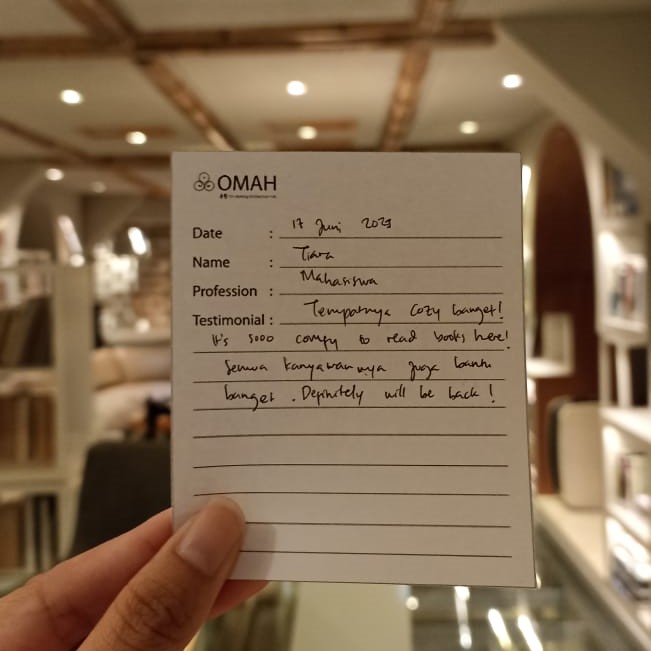 OMAH
Date : 17 Juni 2023
Name : Tiara
Profession : Mahasiswa
Testimonial : Tempatnya cozy banget!
It's sooo comfy to read books here!
Semua karyawannya juga bantu
banget. Definitely will be back!